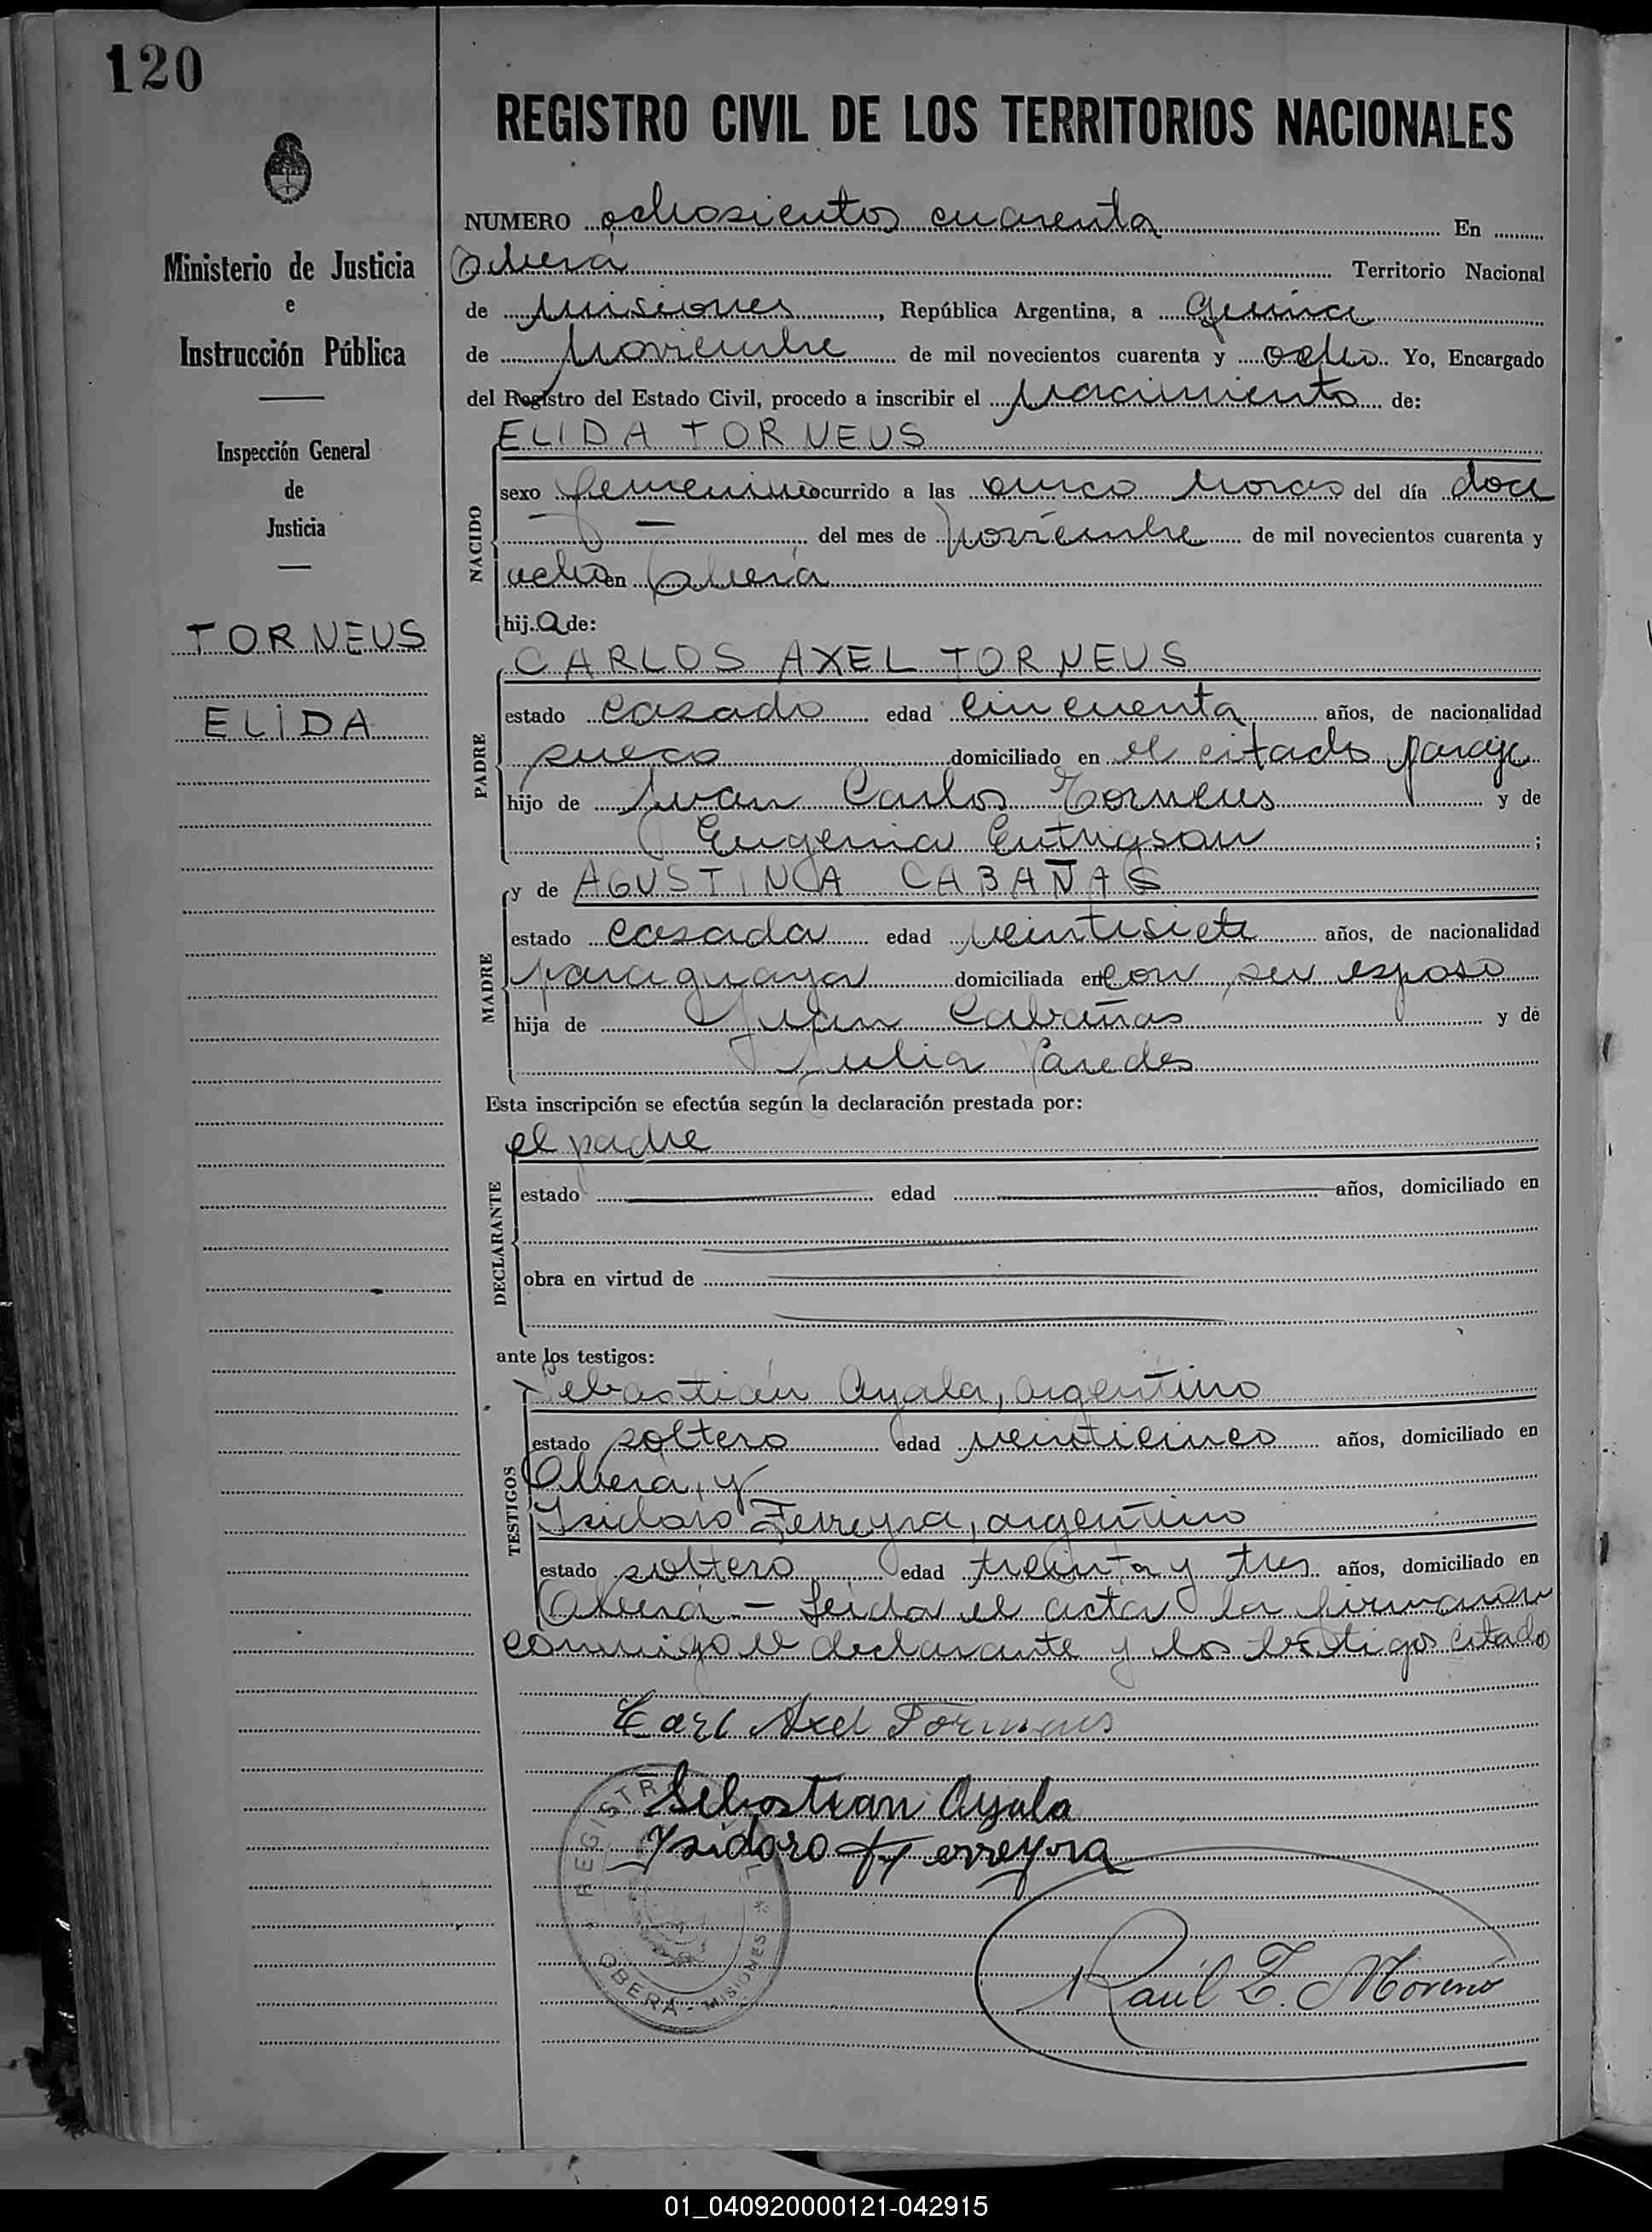 120
REGISTRO CIVIL DE LOS TERRITORIOS NACIONALES
Ministerio de Justicia
e
Instrucción Pública
Inspección General
de
Justicia
TORNEUS
ELIDA
NUMERO ochosientos cuarenta En
Oberá Territorio Nacional
de Misiones, República Argentina, a quince
de Noviembre de mil novecientos cuarenta y ocho Yo, Encargado
del Registro del Estado Civil, procedo a inscribir el Nacimiento de:
ELIDA TORNEUS
NACIDO
sexo femenino ocurrido a las cinco horas del día doce
— del mes de Noviembre de mil novecientos cuarenta y
ocho en Oberá
hij.a de:
CARLOS AXEL TORNEUS
PADRE
estado casado edad cincuenta años, de nacionalidad
sueco domiciliado en el citado paraje
hijo de Juan Carlos Torneus y de
Eugenia ;
y de AGUSTINA CABAÑAS
MADRE
estado casada edad veintisiete años, de nacionalidad
paraguaya domiciliada en con su esposo
hija de Juan Cabañas y de
Julia Paredes
Esta inscripción se efectúa según la declaración prestada por:
el padre
DECLARANTE
estado edad años, domiciliado en
obra en virtud de
ante los testigos:
Sebastián Ayala, argentino
TESTIGOS
estado soltero edad veinticinco años, domiciliado en
Oberá, y
Isidoro Ferreyra, argentino
estado soltero edad treinta y tres años, domiciliado en
Oberá - Leida el acta la firmaron
conmigo el declarante y los testigos citados
Carl Axel Torneus
Sebastian Ayala
Ysidoro Ferreyra
REGISTR
OBERÁ - MISIONES
Raúl E. Moreno
01_040920000121-042915